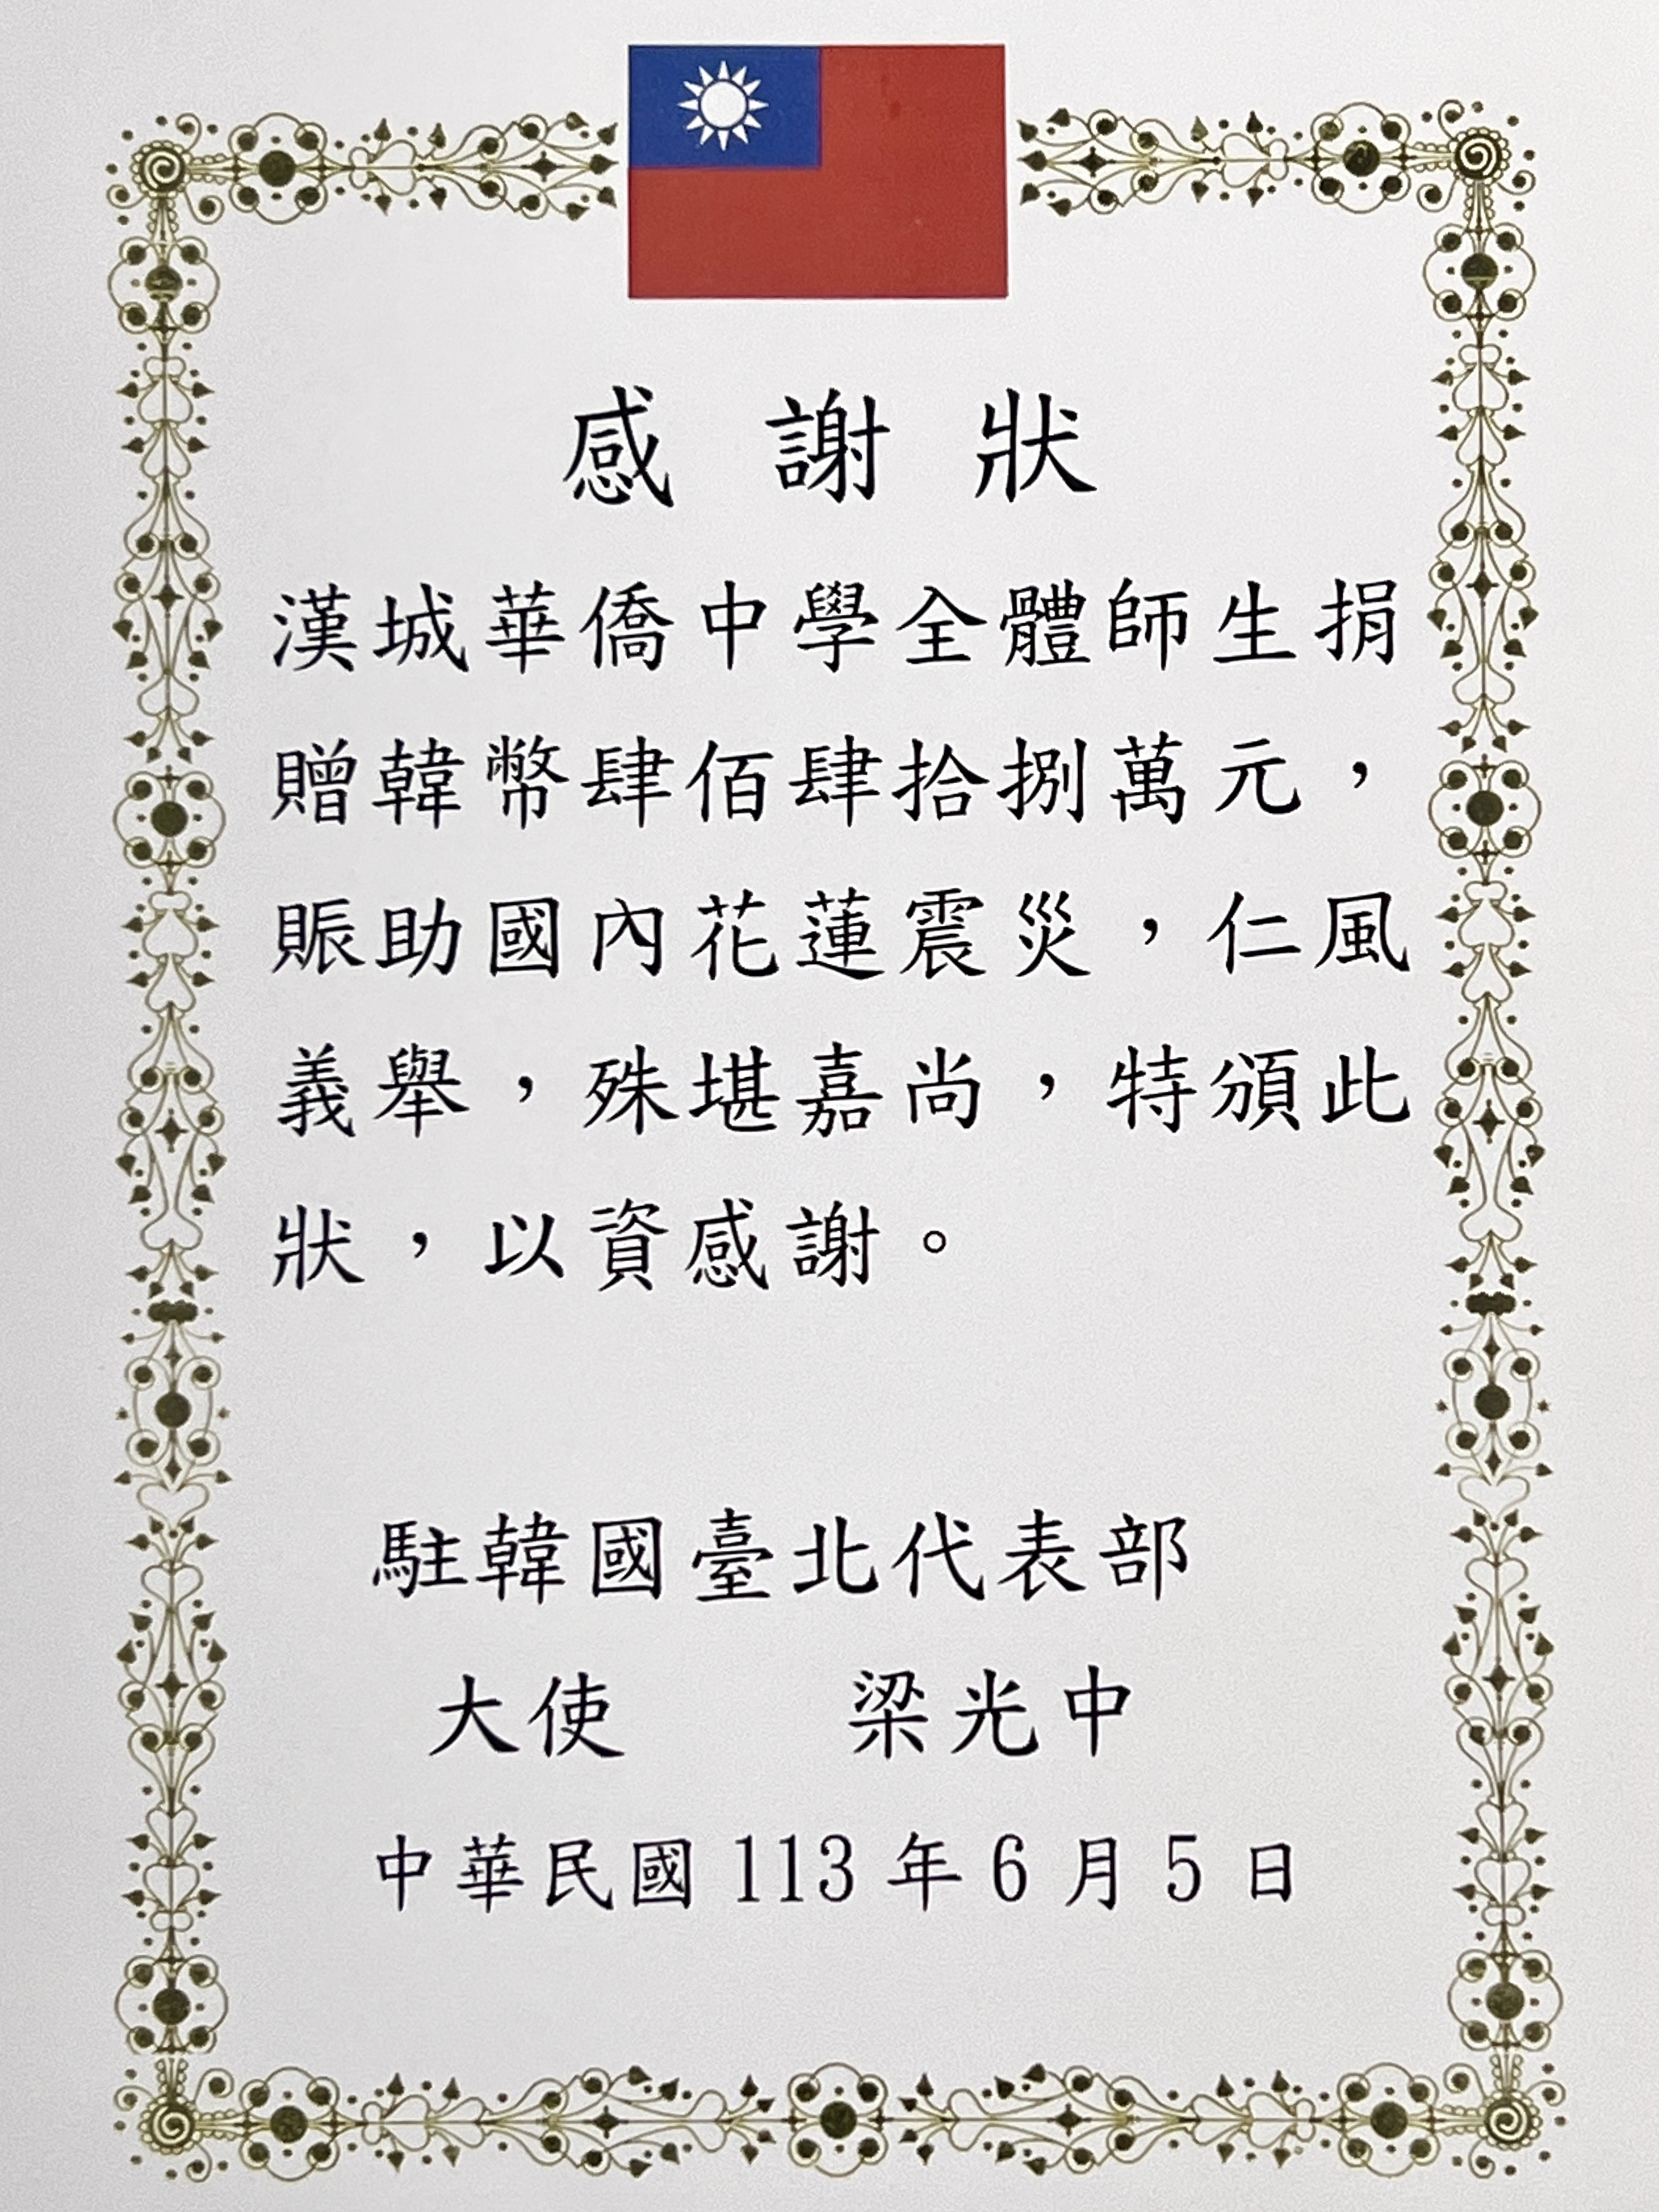 感謝狀
漢城華僑中學全體師生捐
贈韓幣肆佰肆拾捌萬元，
賑助國內花蓮震災，仁風
義舉，殊堪嘉尚，特頒此
狀，以資感謝。
駐韓國臺北代表部
大使 梁光中
中華民國 113 年 6 月 5 日